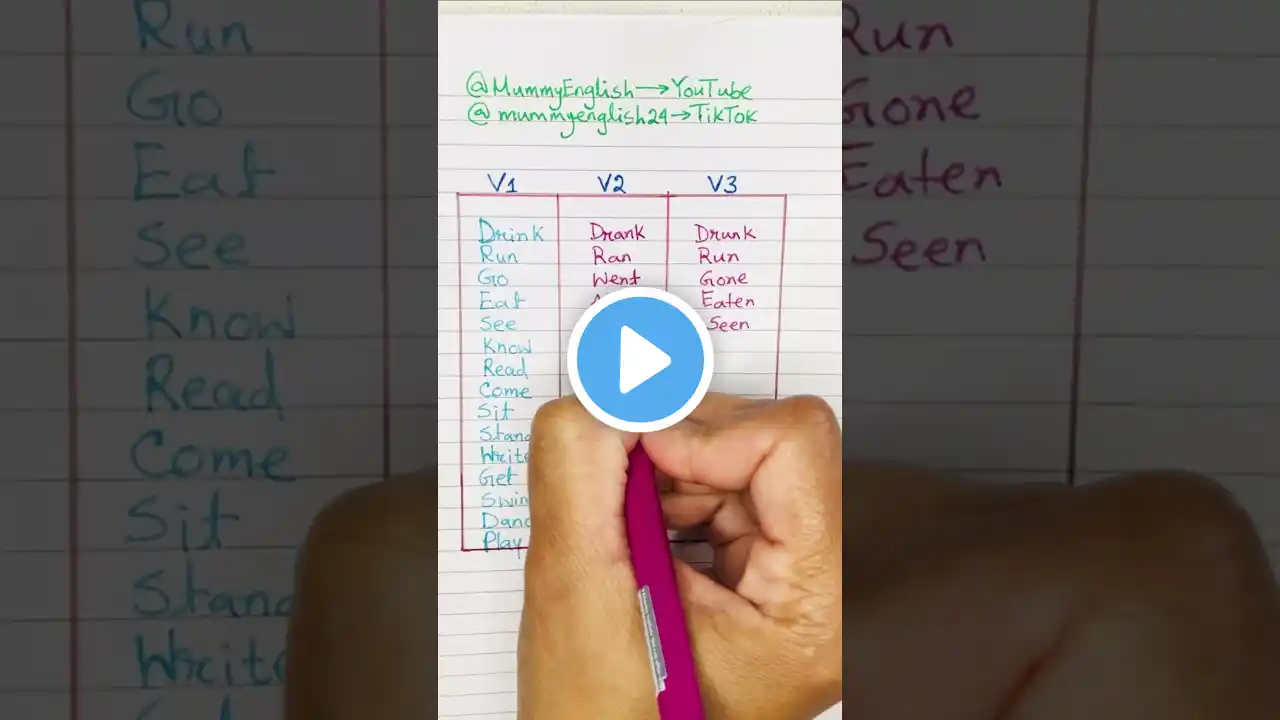 @MummyEnglish→YouTube
@mummyenglish24→TikTok
V1 V2 V3
Drink Drank Drunk
Run Ran Run
Go Went Gone
Eat Eaten
See Seen
Know
Read
Come
Sit
Stand
Write
Get
Play